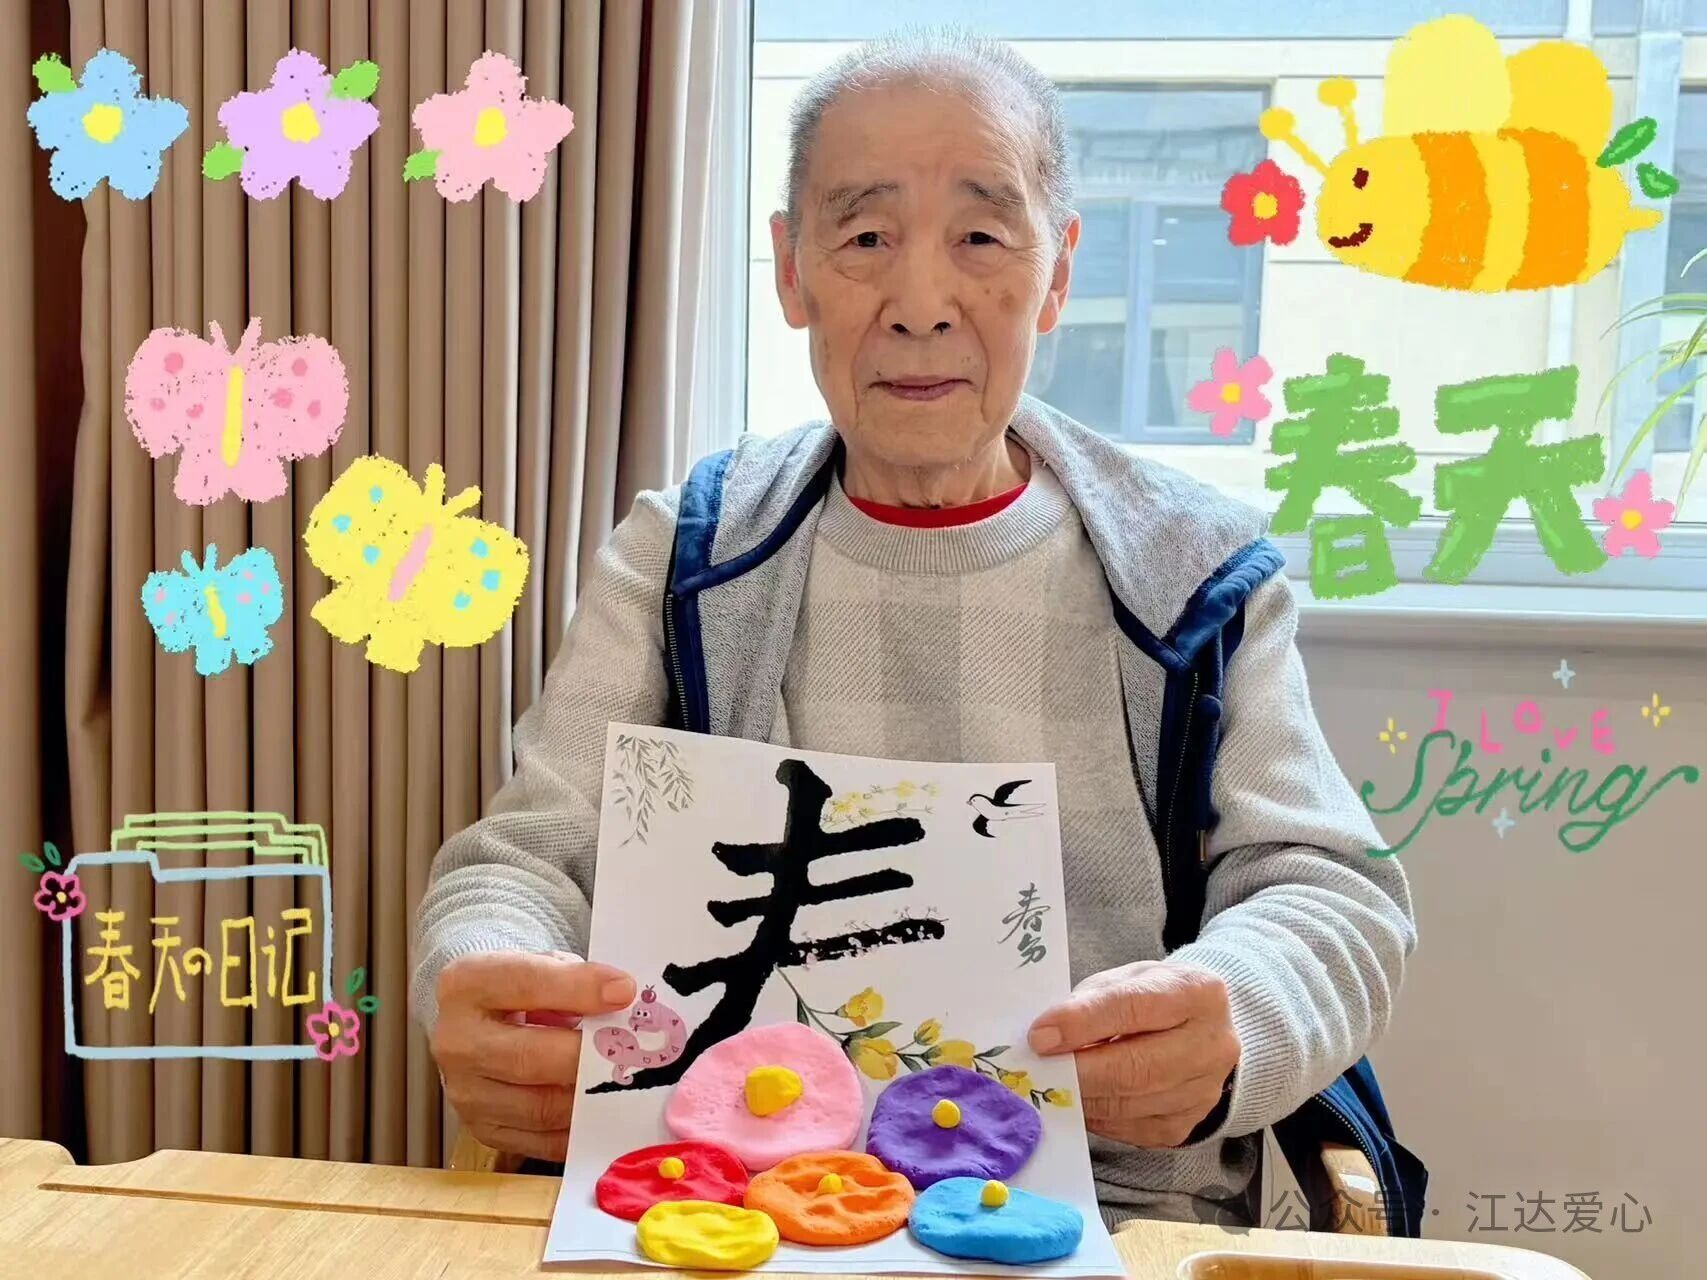 春天
I LOVE
Spring
春天の日记
春分
公众号·江达爱心